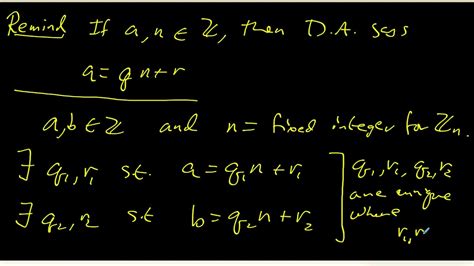 Remind If a, n ∈ ℤ, then D.A. says
a = qn + r
a, b ∈ ℤ and n = fixed integer for ℤₙ.
∃ q₁, r₁ s.t. a = q₁n + r₁
∃ q₂, r₂ s.t b = q₂n + r₂
q₁, r₁, q₂, r₂
are unique
where
r₁, r